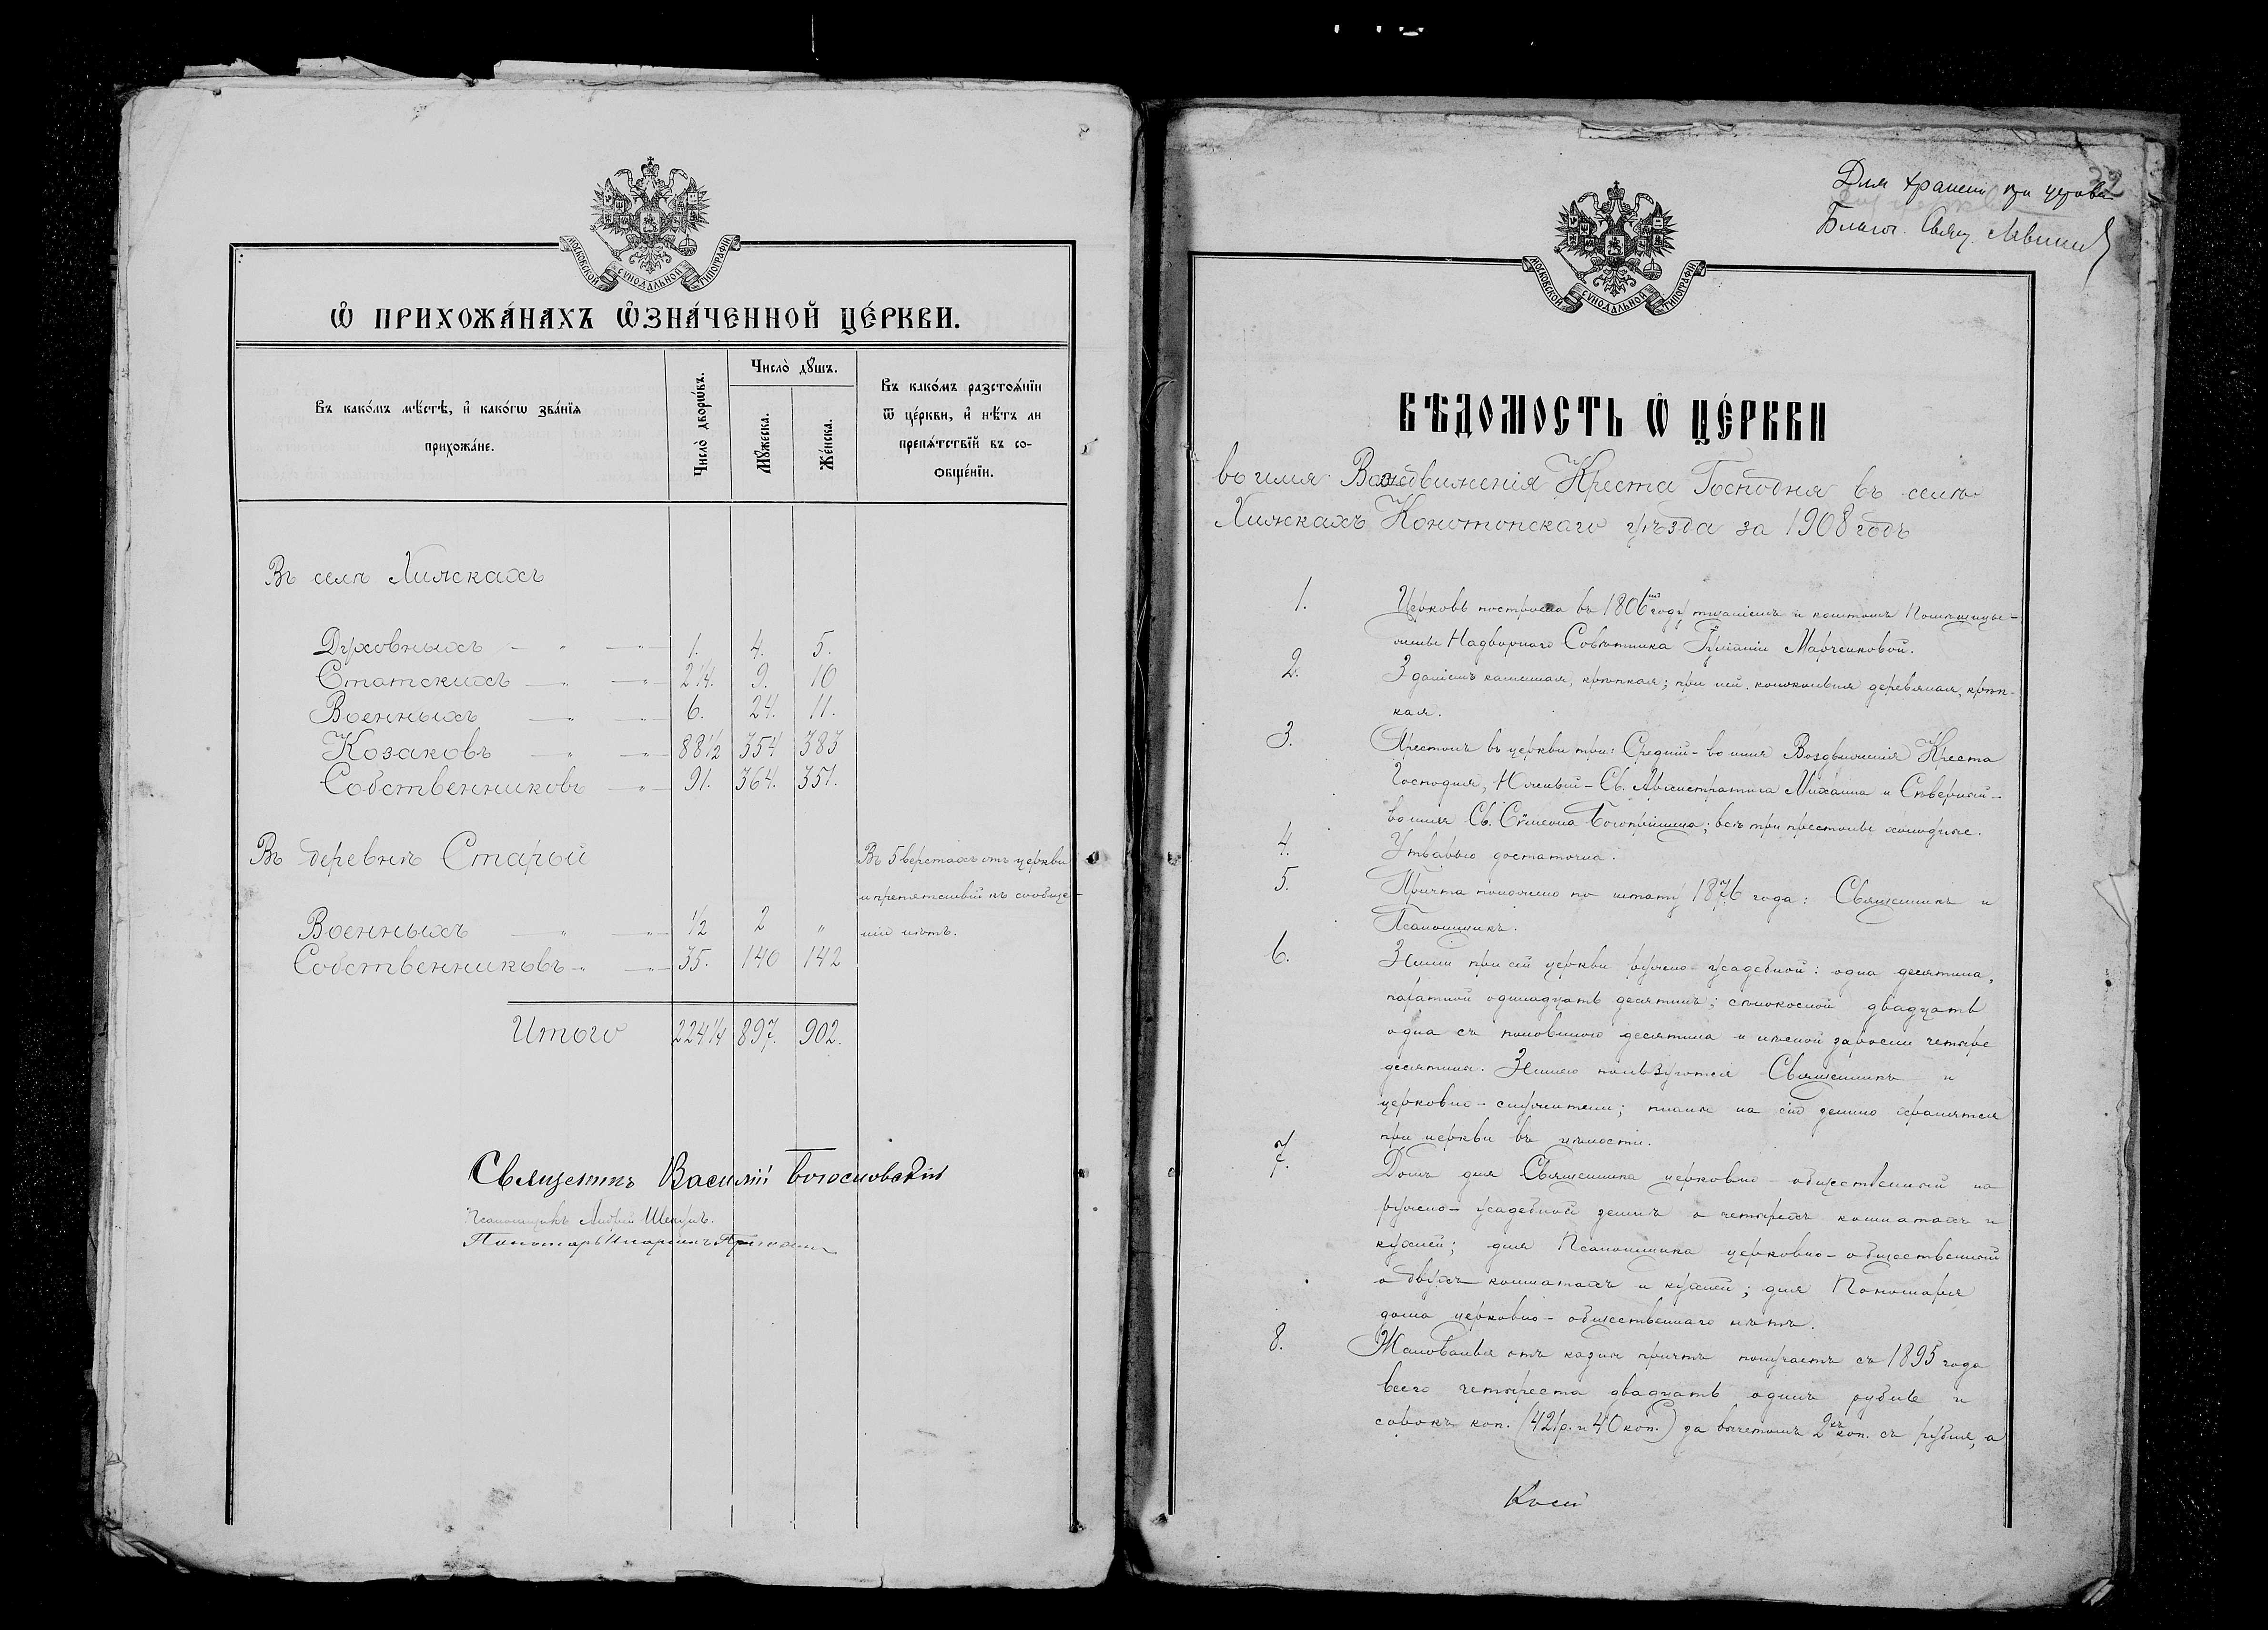 МОСКОВСКОЙ СѴНОДАЛЬНОЙ ТИПОГРАФІИ
Ѽ ПРИХОЖА́НАХЪ Ѡ҆ЗНА́ЧЕННОЙ ЦЕ́РКВИ.
Въ како́мъ мѣ́стѣ, и҆ како́гѡ зва́нїѧ
прихожа́не.
Число̀ дворѡ́въ.
Число̀ дꙋ́шъ.
Мꙋ́жеска.
Же́нска.
Въ како́мъ разстоѧ́нїи
ѿ це́ркви, и҆ нѣ́тъ ли
препѧ́тствїй въ со-
ѻбще́нїи.
Въ селѣ Хижкахъ
Духовныхъ — „ — 1. 4. 5.
Статскихъ — „ — 2¼. 9. 10
Военныхъ — „ — 6. 24. 11.
Козаковъ — „ — 88½ 354 383
Собственниковъ — „ — 91. 364. 351.
Въ деревнѣ Старой
Въ 5 верстахъ отъ церкви
и препятствій къ сообще-
нію нѣтъ.
Военныхъ — „ — ½ 2 „
Собственниковъ — „ — 35. 140 142
Итого 224¼ 897. 902.
Священникъ Василій Богословскій
Псаломщикъ Андрей
Пономарь
32
Для хранен при церкви
Благоч. Свящ.
МОСКОВСКОЙ СѴНОДАЛЬНОЙ ТИПОГРАФІИ
ВѢ́ДОМОСТЬ Ѽ ЦЕ́РКВИ
во имя Воздвиженія Креста Господня въ селѣ
Хижкахъ Конотопскаго уѣзда за 1908 годъ
1. Церковь построена въ 1806мъ году тщаніемъ и коштомъ Помѣщицы-
жены Надворного Совѣтника Іуліаніи Марченковой.
2. Зданіемъ каменная, крѣпкая; при ней колокольня деревяная, крѣп-
кая.
3. Престол въ церкви три: Средній - во имя Воздвиженія Креста
Господня, Южный - Св. Архистратига Михаила и Сѣверный -
во имя Св. Сѵмеона Богопріимца; всѣ три престолы холодные.
4. Утварью достаточна.
5. Причта положено по штату 1876 года: Священникъ и
Псаломщикъ.
6. Земли при сей церкви ружно-усадебной: одна десятина,
пахатной одинадцать десятинъ; сѣнокосной двадцать
одна съ половиною десятина и лѣсной заросли четыре
десятины. Землею пользуются Священникъ и
церковно-служители; планы на сію землю хранятся
при церкви въ цѣлости.
7. Домъ для Священника церковно-общественный на
ружно-усадебной землѣ о четырехъ комнатахъ и
кухней; для Псаломщика церковно-общественный
о двухъ комнатахъ и кухней; для Пономаря
дома церковно-общественнаго нѣтъ.
8. Жалованья отъ казны причтъ получаетъ съ 1895 года
всего четыреста двадцать одинъ рубль и
сорокъ коп. (421р. и 40 коп.) за вычетомъ 2хъ коп. съ рубля, а